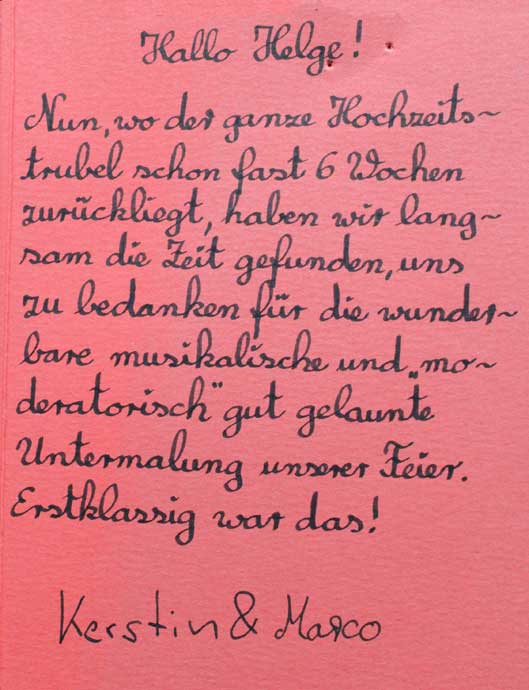 Hallo Helge!
Nun, wo der ganze Hochzeits~
trubel schon fast 6 Wochen
zurückliegt, haben wir lang~
sam die Zeit gefunden, uns
zu bedanken für die wunder~
bare musikalische und „mo~
deratorisch“ gut gelaunte
Untermalung unserer Feier.
Erstklassig war das!
Kerstin & Marco